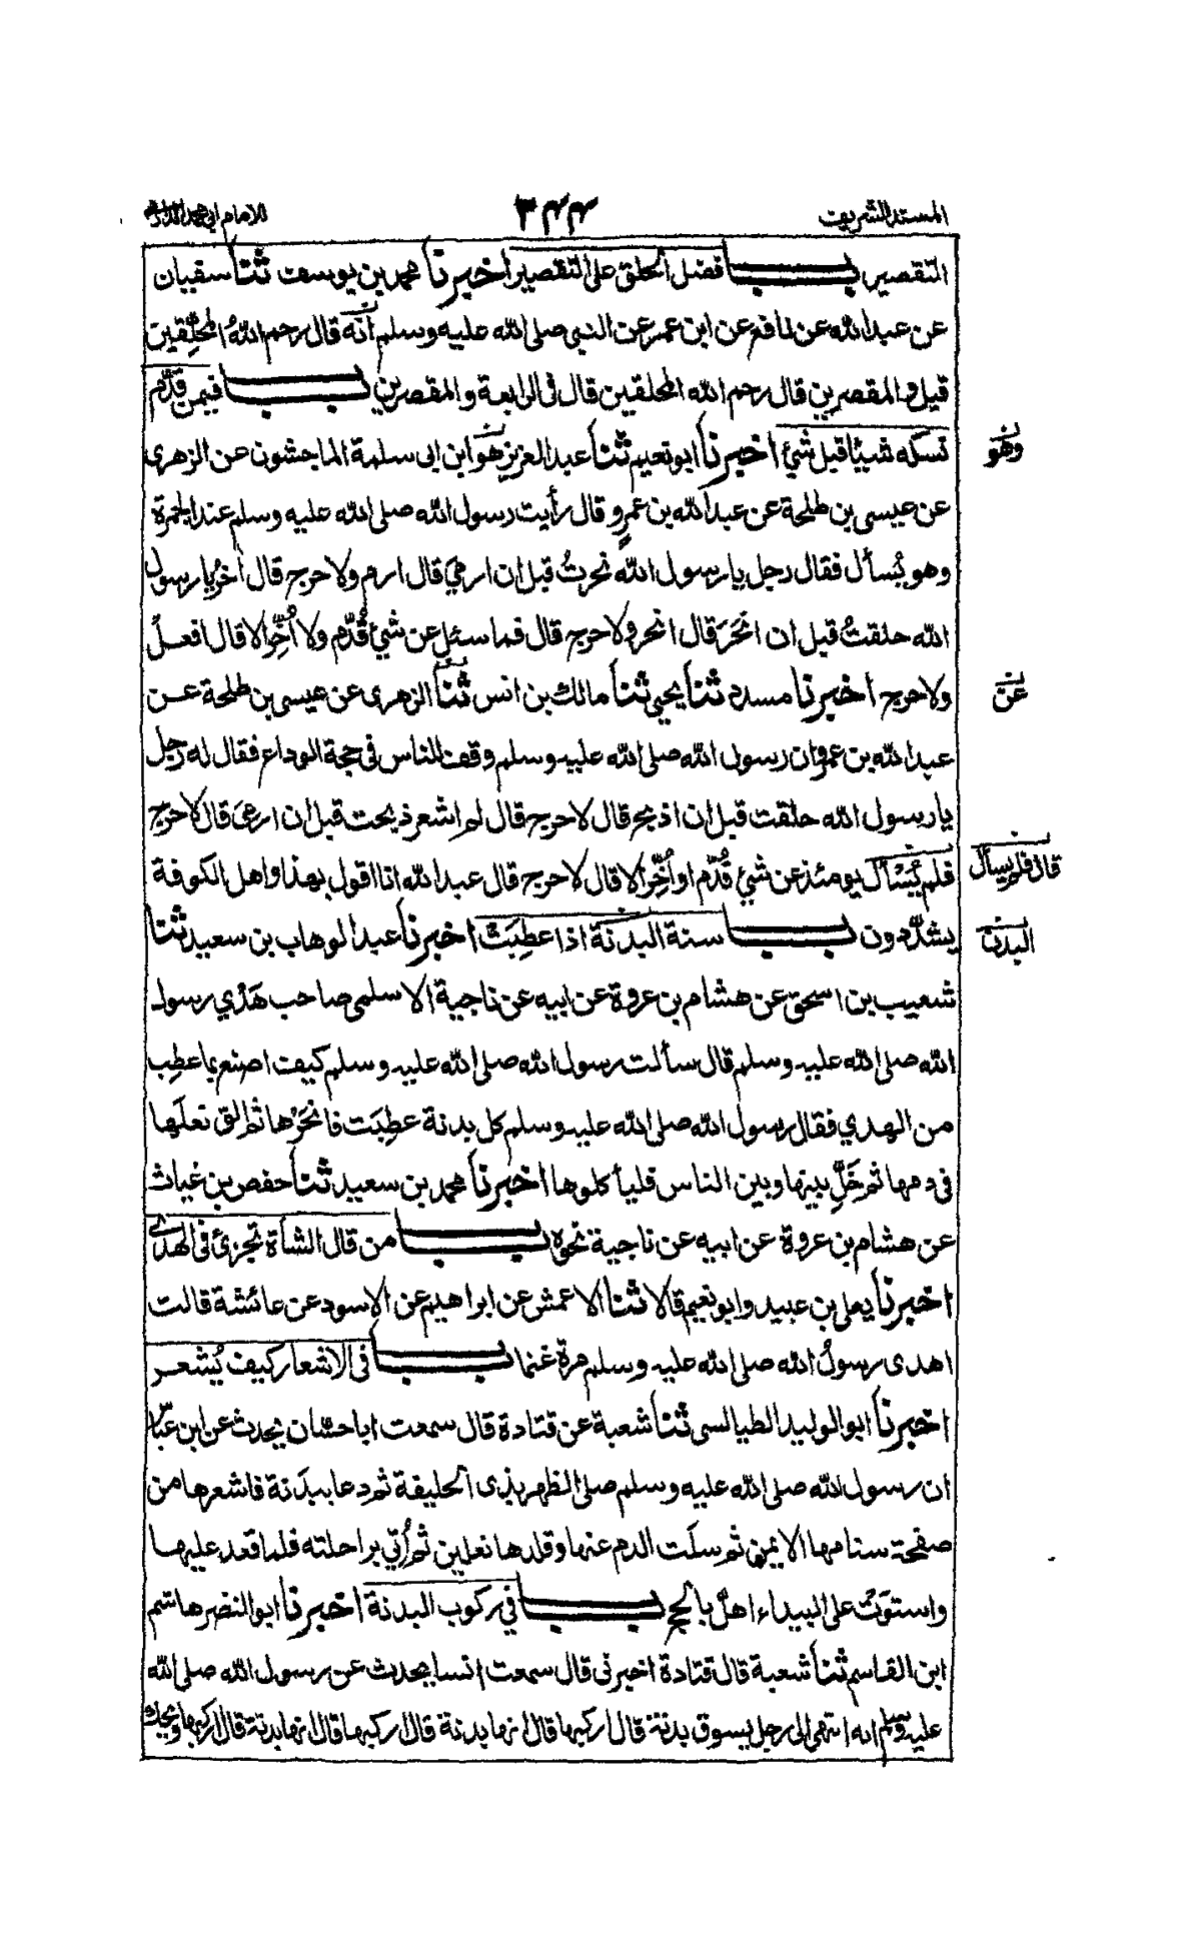 المسند الشريف
٢٤٤
للامام ابي محمد الدارمي
التقصير باب فضل الحلق على التقصير اخبرنا محمد بن يوسف ثنا سفيان
عن عبد الله عن نافع عن ابن عمر عن النبي صلى الله عليه وسلم انه قال رحم اللهُ المحلِّقين
قيل والمقصرين قال رحم الله المحلقين قال فى الرابعة والمقصرين باب فيمن قدّم
نسكه شيئا قبل شئ اخبرنا ابو نعيم ثنا عبد العزيز هو ابن ابى سلمة الماجشون عن الزهرى
وهو
عن عيسى بن طلحة عن عبد الله بن عمرٍو قال رأيت رسول الله صلى الله عليه وسلم عند الجمرة
وهو يُسأل فقال رجل يا رسول الله نحرتُ قبل ان ارمىَ قال ارم ولا حرج قال آخرُ يا رسول
الله حلقتُ قبل ان انحَرَ قال انحر ولا حرج قال فما سئل عن شئ قُدّم ولا اُخِّر الا قال افعلْ
ولا حرج اخبرنا مسدد ثنا يحيى ثنا مالك بن انس ثنا الزهرى عن عيسى بن طلحة عن
عن
عبد الله بن عمرو ان رسول الله صلى الله عليه وسلم وقف للناس فى حجة الوداع فقال له رجل
يا رسول الله حلقت قبل ان اذبح قال لا حرج قال لم اشعر ذبحت قبل ان ارمىَ قال لا حرج
فلم يُسْأل يومئذ عن شئ قُدّم او اُخِّر الا قال لا حرج قال عبد الله انا اقول بهذا واهل الكوفة
قال فلم يسأل
يشدّدون باب سنة البدنة اذا عطِبَتْ اخبرنا عبد الوهاب بن سعيد ثنا
البدن
شعيب بن اسحق عن هشام بن عروة عن ابيه عن ناجية الاسلمى صاحب هَدْي رسول
الله صلى الله عليه وسلم قال سألت رسول الله صلى الله عليه وسلم كيف اصنع بما عطِب
من الهدي فقال رسول الله صلى الله عليه وسلم كل بدنة عطِبَت فانحَرْها ثم الق نعلَها
فى دمها ثم خَلِّ بينها وبين الناس فليأكلوها اخبرنا محمد بن سعيد ثنا حفص بن غياث
عن هشام بن عروة عن ابيه عن ناجية نحوه باب من قال الشاة تجزئ فى الهدْي
اخبرنا يعلى بن عبيد وابو نعيم قالا ثنا الاعمش عن ابراهيم عن الاسود عن عائشة قالت
اهدى رسولُ الله صلى الله عليه وسلم مرة غنما باب فى الاشعار كيف يُشعر
اخبرنا ابو الوليد الطيالسى ثنا شعبة عن قتادة قال سمعت ابا حسّان يحدث عن ابن عبّاس
ان رسول الله صلى الله عليه وسلم صلى الظهر بذى الحليفة ثم دعا ببدَنة فاشعرها من
صفحة سنامها الايمن ثم سلَت الدم عنها وقلدها نعلين ثم أُتي براحلته فلما قعد عليها
واستوَتْ على البيداء اهلّ بالحج باب في ركوب البدنة اخبرنا ابو النضر هاشم
ابن القاسم ثنا شعبة قال قتادة اخبرنى قال سمعت انسا يحدث عن رسول الله صلى الله
عليه وسلم انه انتهى الى رجل يسوق بدنة قال اركبها قال انها بدنة قال اركبها قال انها بدنة قال اركبها ويحك